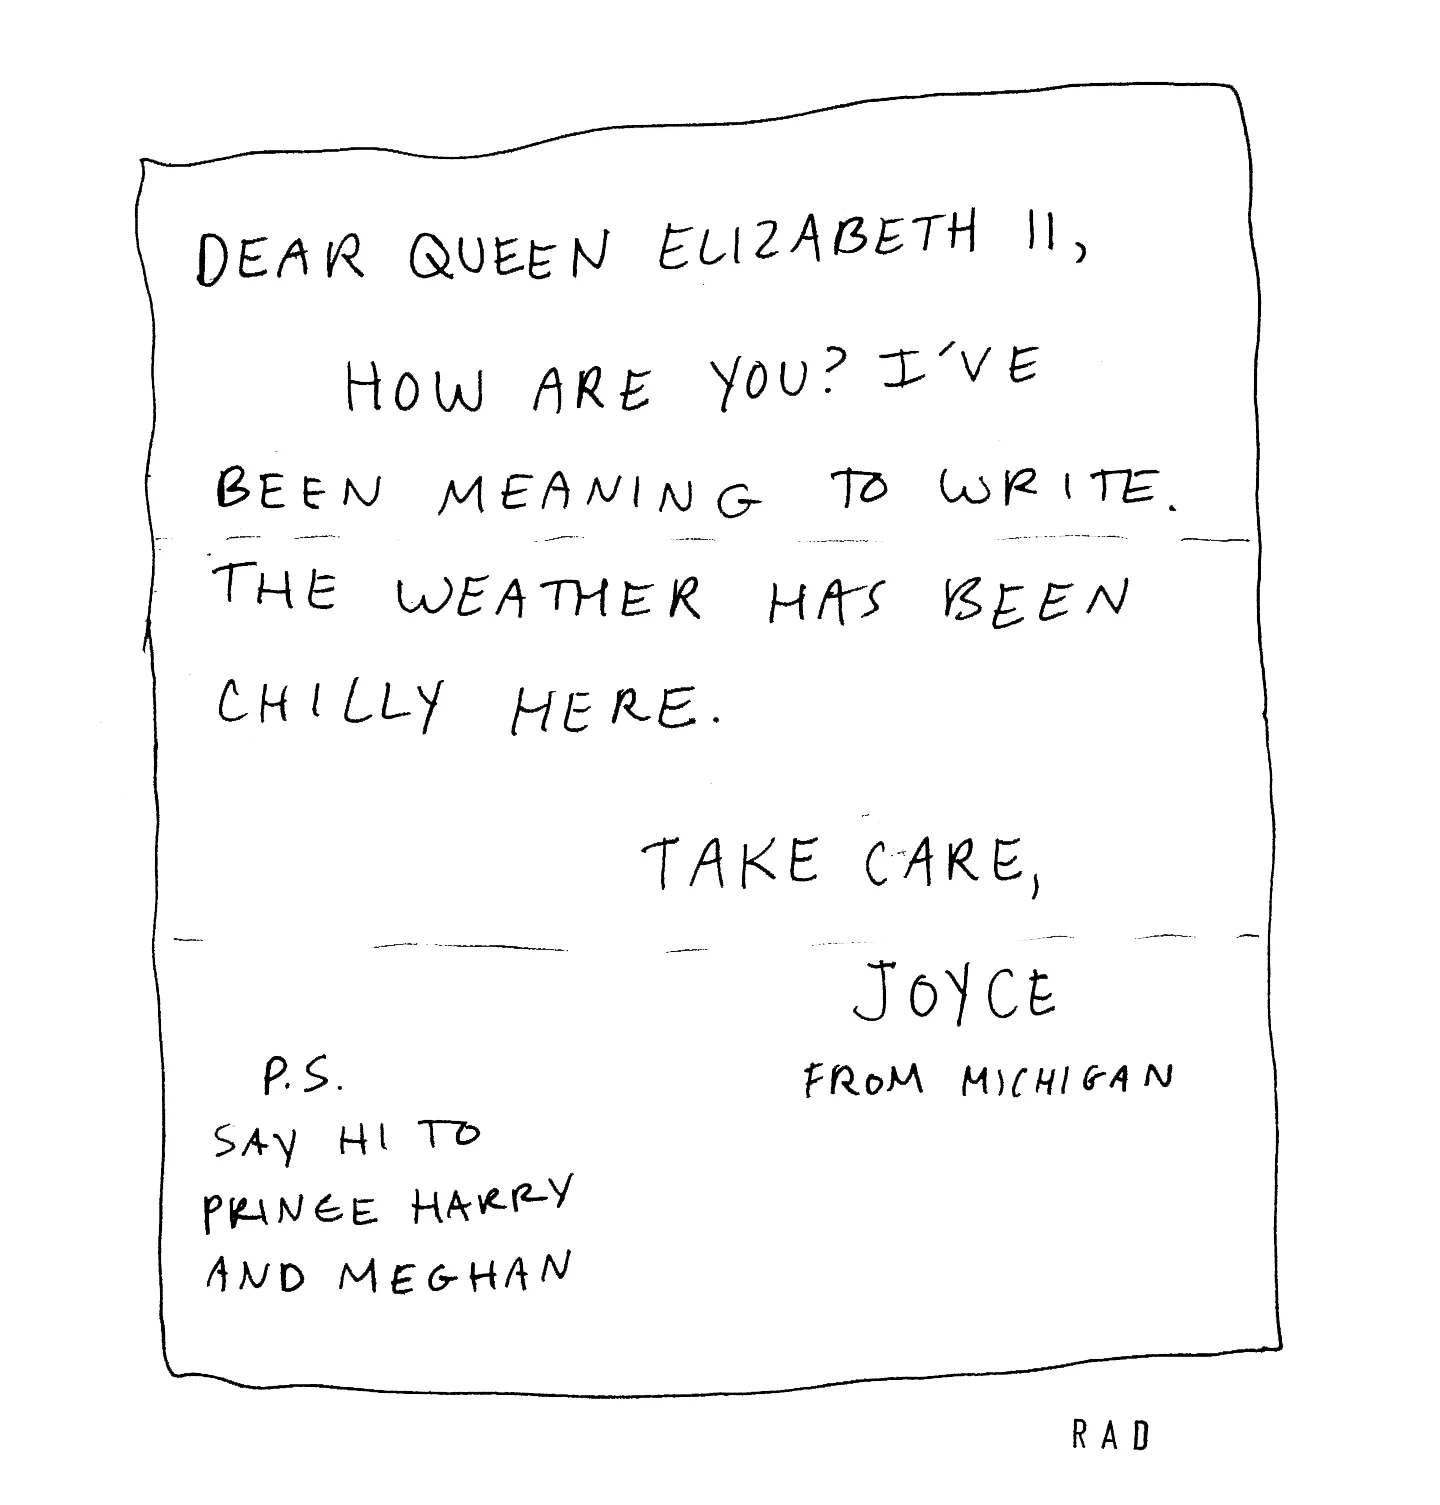 DEAR QUEEN ELIZABETH II,
HOW ARE YOU? I'VE
BEEN MEANING TO WRITE.
THE WEATHER HAS BEEN
CHILLY HERE.
TAKE CARE,
JOYCE
FROM MICHIGAN
P.S.
SAY HI TO
PRINCE HARRY
AND MEGHAN
RAD